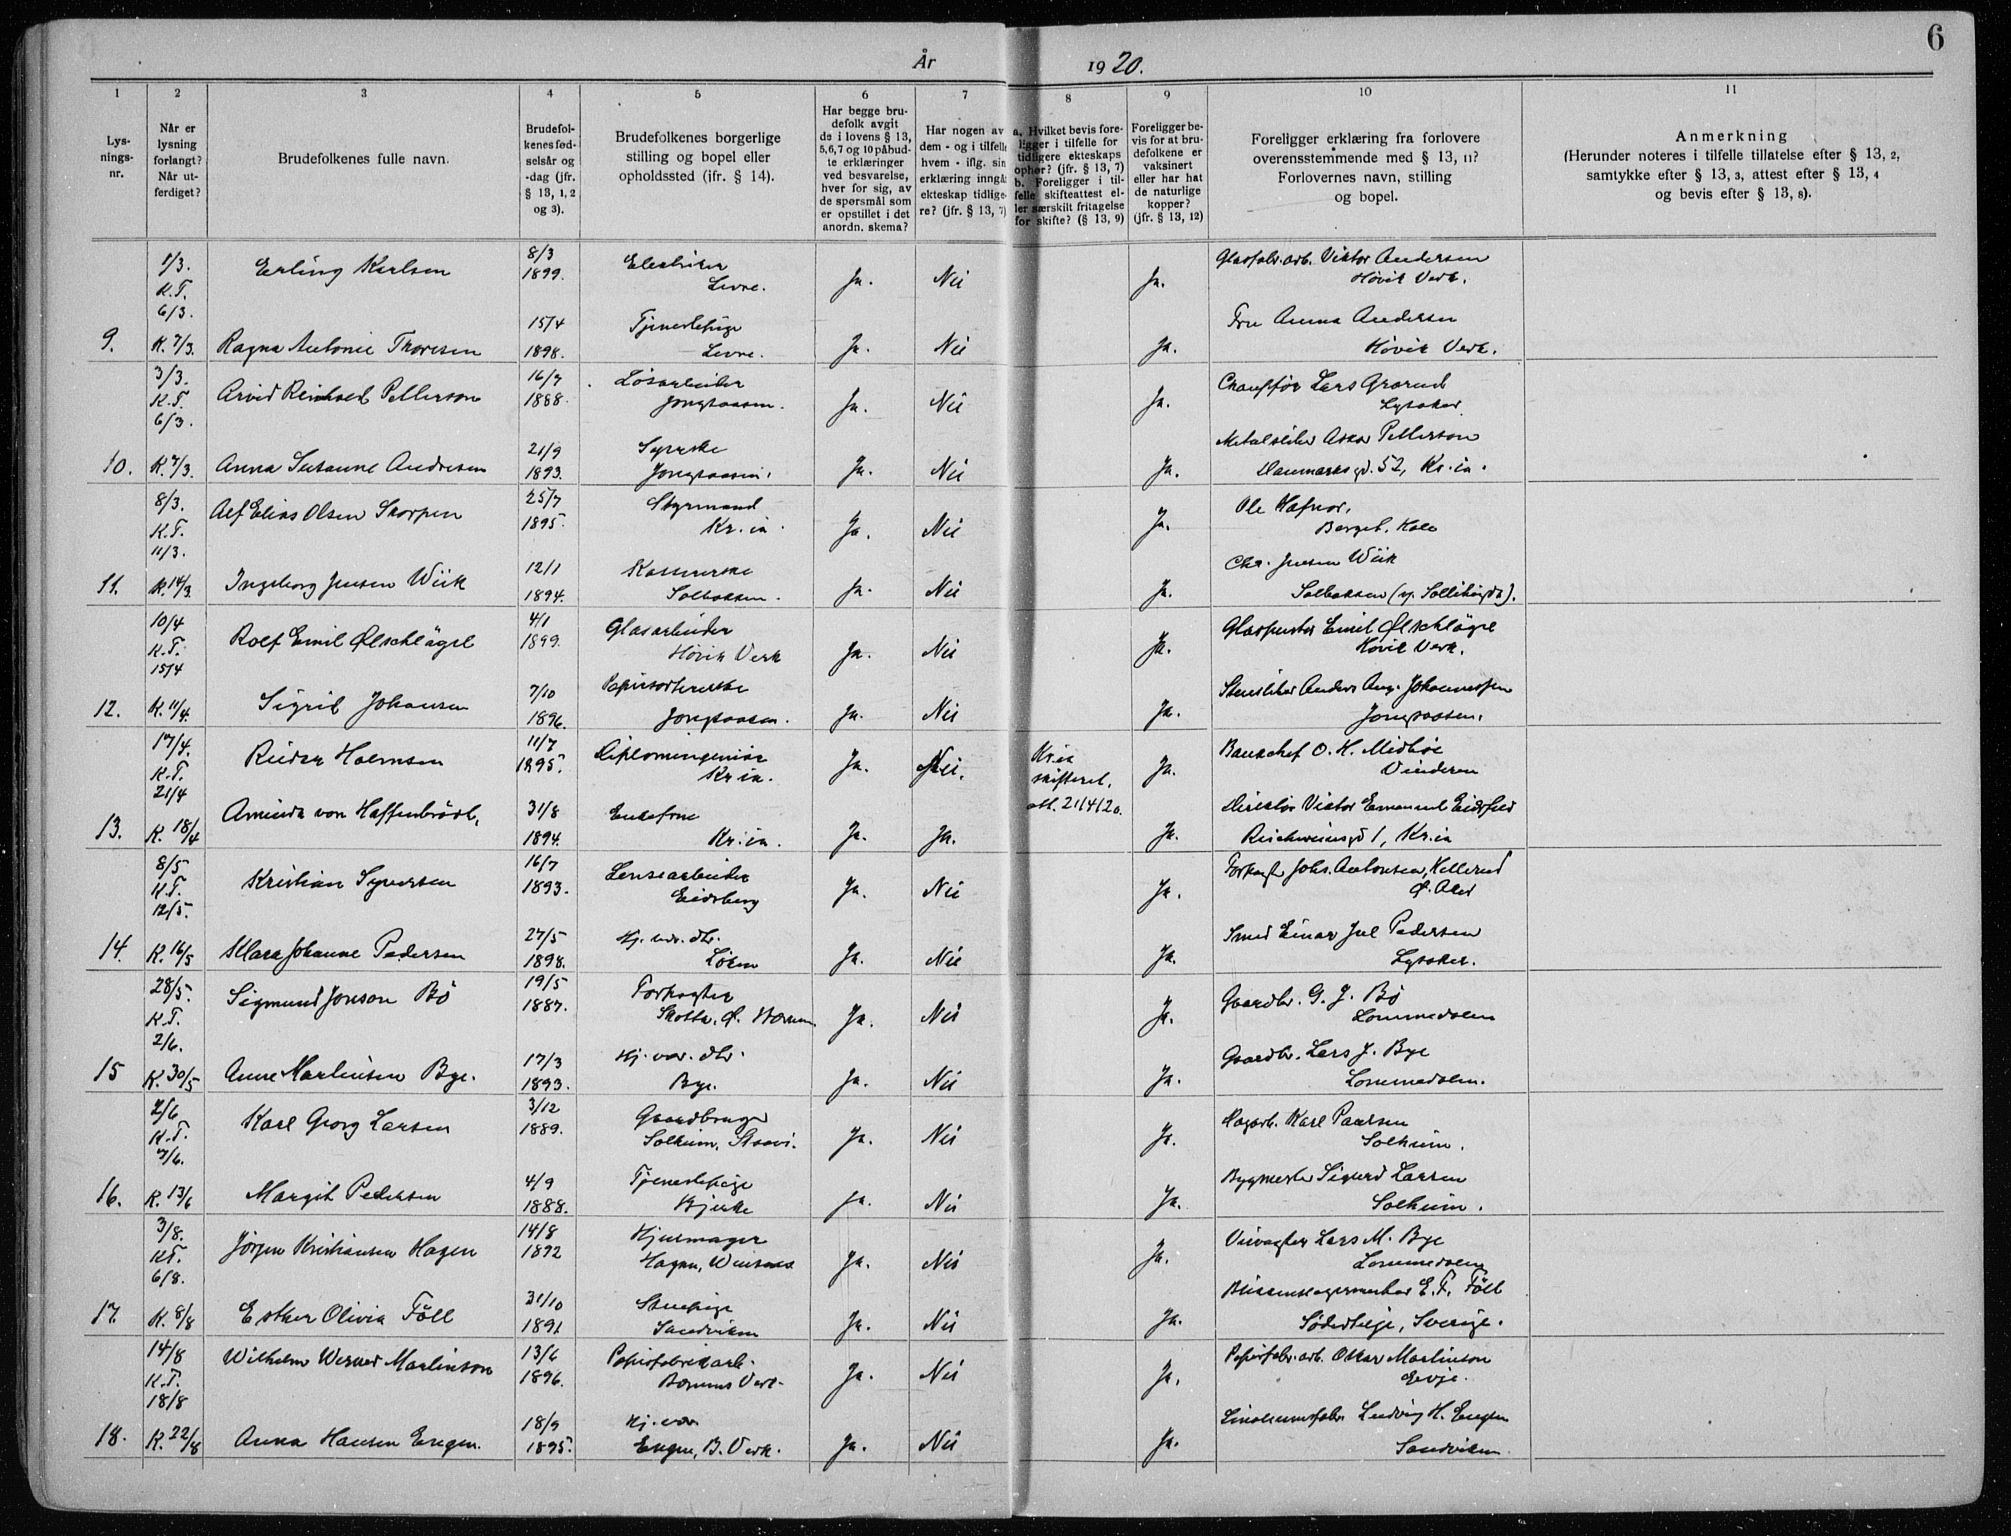 6
År 1920.
1 2 3 4 5 6 7 8 9 10 11
Lys-
nings-
nr.
Når er
lysning
forlangt?
Når ut-
ferdiget?
Brudefolkenes fulle navn.
Brudefol-
kenes fød-
selsår og
-dag (jfr.
§ 13, 1, 2
og 3).
Brudefolkenes borgerlige
stilling og bopel eller
opholdssted (ifr. § 14).
Har begge bru-
defolk avgit
de i lovens § 13,
5,6,7 og 10 påbud-
te erklæringer
ved besvarelse,
hver for sig, av
de spørsmål som
er opstillet i det
anordn. skema?
Har nogen av
dem - og i tilfelle
hvem - iflg. sin
erklæring inngåt
ekteskap tidlige-
re? (jfr. § 13, 7)
a. Hvilket bevis fore-
ligger i tilfelle for
tidligere ekteskaps
ophør? (jfr. § 13, 7)
b. Foreligger i til-
felle skifteattest el-
ler særskilt fritagelse
for skifte? (§ 13, 9)
Foreligger be-
vis for at bru-
defolkene er
vaksinert
eller har hat
de naturlige
kopper?
(jfr. § 13, 12)
Foreligger erklæring fra forlovere
overensstemmende med § 13, 11?
Forlovernes navn, stilling
og bopel.
Anmerkning
(Herunder noteres i tilfelle tillatelse efter § 13, 2,
samtykke efter § 13, 3, attest efter § 13, 4
og bevis efter § 13, 8).
1/3. Erling Karlsen 8/3 1899. Levre. Ja. Nei Ja. Glasfabr.arb. Viktor Andersen
K.T. Høvik Verk.
6/3.
9. K. 7/3. Ragna Antonie Thoresen 15/4 1898. Tjenestepige Levre. Ja. Nei Ja. Fru Anna Andersen
Høvik Verk.
3/3. Arvid Reinhold Petterson 16/7 1888. Løsarbeider Jongsaasen. Ja. Nei Ja. Chauffør Lars
K.T. Lysaker
6/3.
10. K. 7/3. Anna Susanne Andresen 21/9 1893. Syerske Jongsaasen. Ja. Nei Ja. Petterson
Danmarksgd. 52, Kr.ia.
8/3. Alf Elias Olsen Skorpen 25/7 1895. Styrmand Kr.ia. Ja. Nei Ja. Ole Hafnor,
K.T. Berget, Hole
11/3.
11. K. 14/3. Ingeborg Jensen Wiik 12/1 1894. Kassererske Solbakken. Ja. Nei Ja. Chr. Jensen Wiik
Solbakken
10/4 Rolf Emil Ølschlägel 4/1 1899. Glasarbeider Høvik Verk Ja. Nei Ja. Glaspuster Emil Ølschlägel
K.T. Høvik Verk.
15/4
12. K. 11/4. Sigrid Johansen 7/10 1896. Papirsortererske Jongsaasen. Ja. Nei Ja. Anders Aug. Johannessen
Jongsaasen.
17/4. Reidar Holmsen 11/7 1895. Diplomingeniør Kr.ia. Ja. Nei. Kr.ia Ja. O. H. Midbøe
K.T. skifteret, Vinderen
21/4 att. 21/4 20.
13. K. 18/4 Aminda von Haffenbrädl, 31/8 1894. Enkefrue Kr.ia. Ja. Ja. Ja. Direktør Viktor Emanuel
1, Kr.ia
8/5 Kristian Syversen 16/7 1893. Lensearbeider Eidsberg Ja. Nei Ja. Johs. Antonsen,
K.T.
12/5.
14. K. 16/5 Klara Johanne Pedersen 27/5 1898. Hj. vær. dtr. Ja. Nei Ja. Smed Einar Jul Pedersen
Lysaker.
28/5. Sigmund Jonson Bö 19/5 1887. Forhagter Skotta, Ø. Bærum Ja. Nei Ja. Gaardbr. G. J. Bö
K.T. Lommedalen
2/6.
15 K. 30/5 Anne Martinsen Bye. 17/3 1893. Hj. vær. dtr. Bye. Ja. Nei Ja. Gaardbr. Lars J. Bye
Lommedalen.
2/6 Karl Georg Larsen 3/12 1889. Gaardbruger Solheim, Ja. Nei Ja. Karl Paulsen
K.T. Solheim.
7/6.
16. K. 13/6 Margit Pedersen 4/9 1888. Tjenestepige Bjerke Ja. Nei Ja. Bygmester Sigurd Larsen
Solheim.
3/8. Jörgen Kristiansen Hagen 14/8 1892 Hjulmager Hagen, Ja. Nei Ja. Veivogter Lars M. Bye
K.T. Lommedalen
6/8.
17. K. 8/8 Esther Olivia Föll 31/10 1891 Stuepige Sandviken Ja. Nei Ja. E. F. Föll
Södertelje, Sverige.
14/8 Wilhelm Werner Martinson 13/6 1896. Papirfabrikarb. Bærums Verk. Ja. Nei Ja. Papirfabr.arb. Oskar Martinson
K.T. Evje.
18/8
18. K. 22/8 Anna Hansen Engen. 18/9 1895. Hj. vær. Engen, B. Verk. Ja. Nei Ja. Ludvig H. Engen
Sandviken